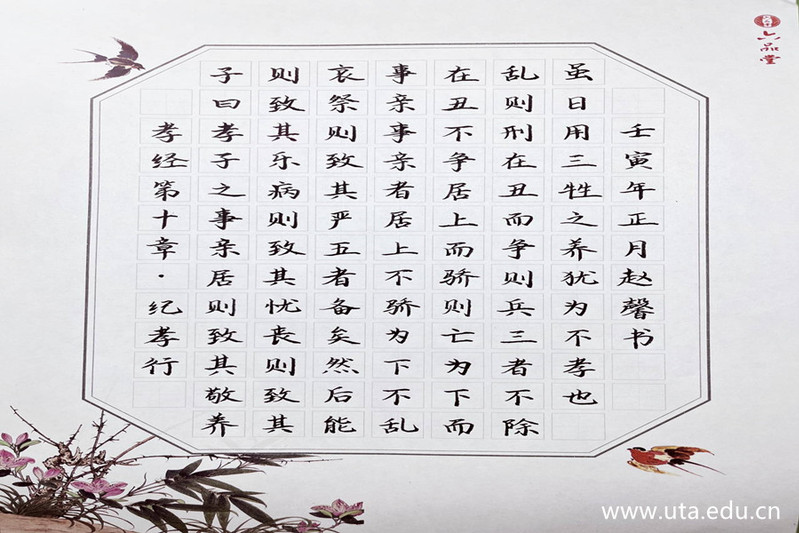 孝经第十章·纪孝行
子曰孝子之事亲居则致其敬养
则致其乐病则致其忧丧则致其
哀祭则致其严五者备矣然后能
事亲事亲者居上不骄为下不乱
在丑不争居上而骄则亡为下而
乱则刑在丑而争则兵三者不除
虽日用三牲之养犹为不孝也
壬寅年正月赵馨书
六品堂
www.uta.edu.cn